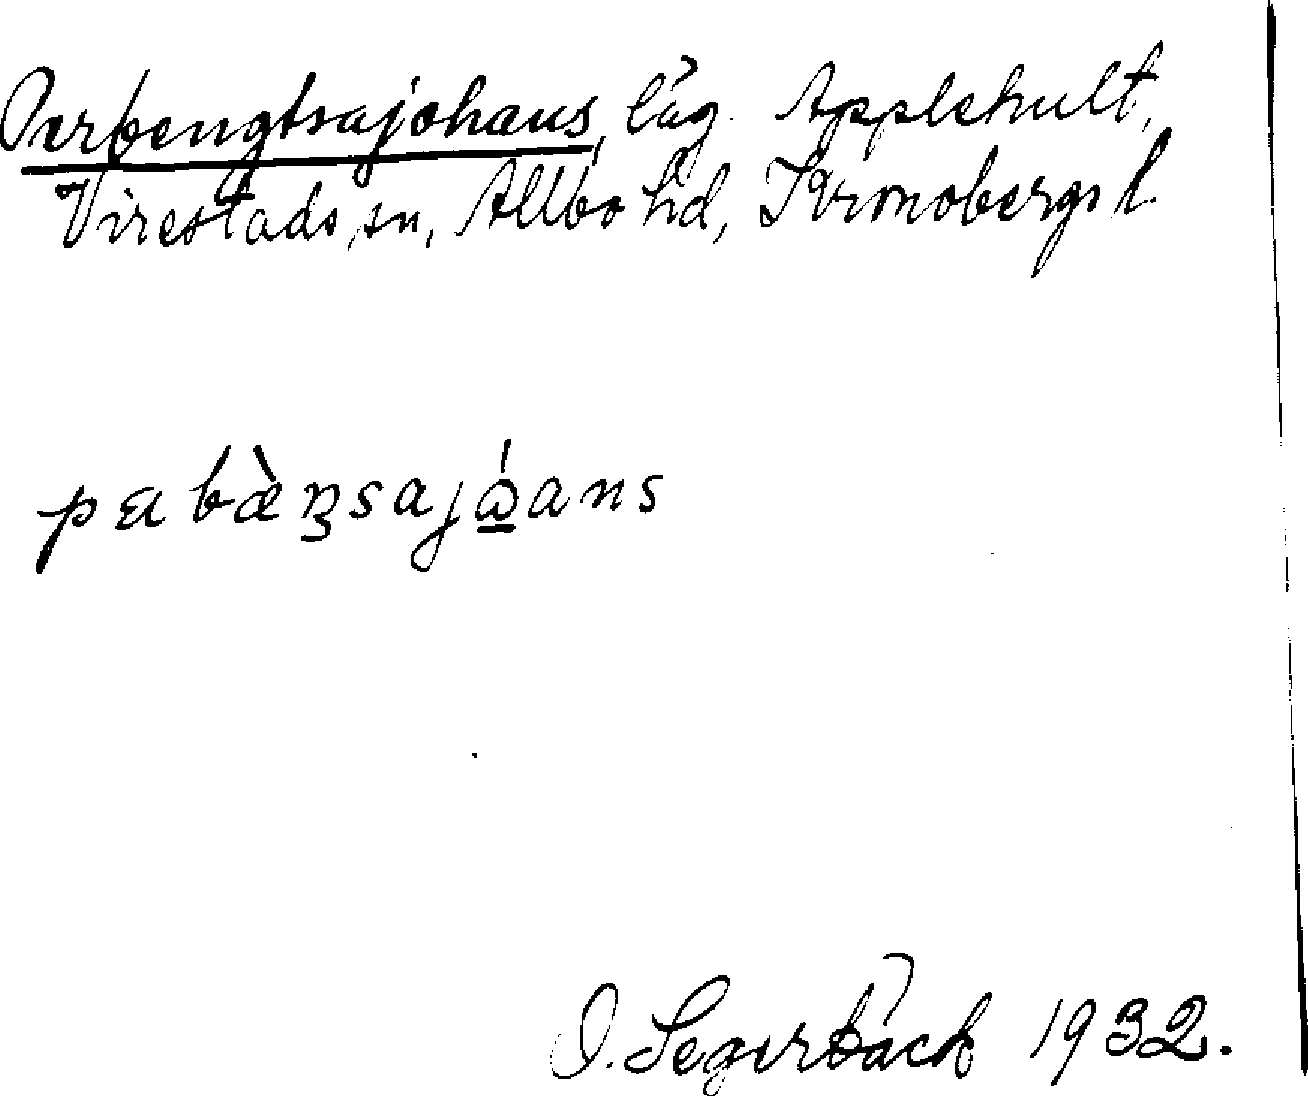 Perbengtsajohans, läg. Applehult,
Virestads sn, Allbo hd, Kronobergs l.
pɛbæ̀ŋsajɷ́ans
O. Segerbäck 1932.